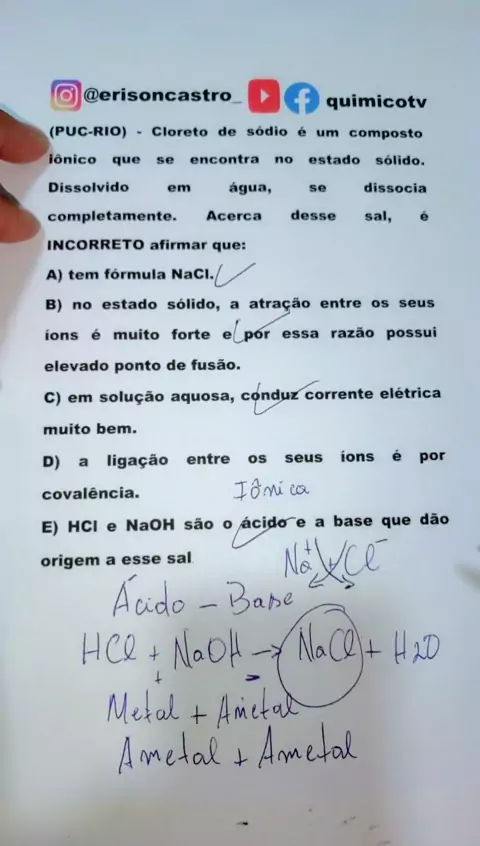 @erisoncastro_ quimicotv
(PUC-RIO) - Cloreto de sódio é um composto
iônico que se encontra no estado sólido.
Dissolvido em água, se dissocia
completamente. Acerca desse sal, é
INCORRETO afirmar que:
A) tem fórmula NaCl.
B) no estado sólido, a atração entre os seus
íons é muito forte e por essa razão possui
elevado ponto de fusão.
C) em solução aquosa, conduz corrente elétrica
muito bem.
D) a ligação entre os seus íons é por
covalência. Iônica
E) HCl e NaOH são o ácido e a base que dão
origem a esse sal
Na⁺ Cl⁻
Ácido - Base
HCl + NaOH → NaCl + H2O
+ -
Metal + Ametal
Ametal + Ametal